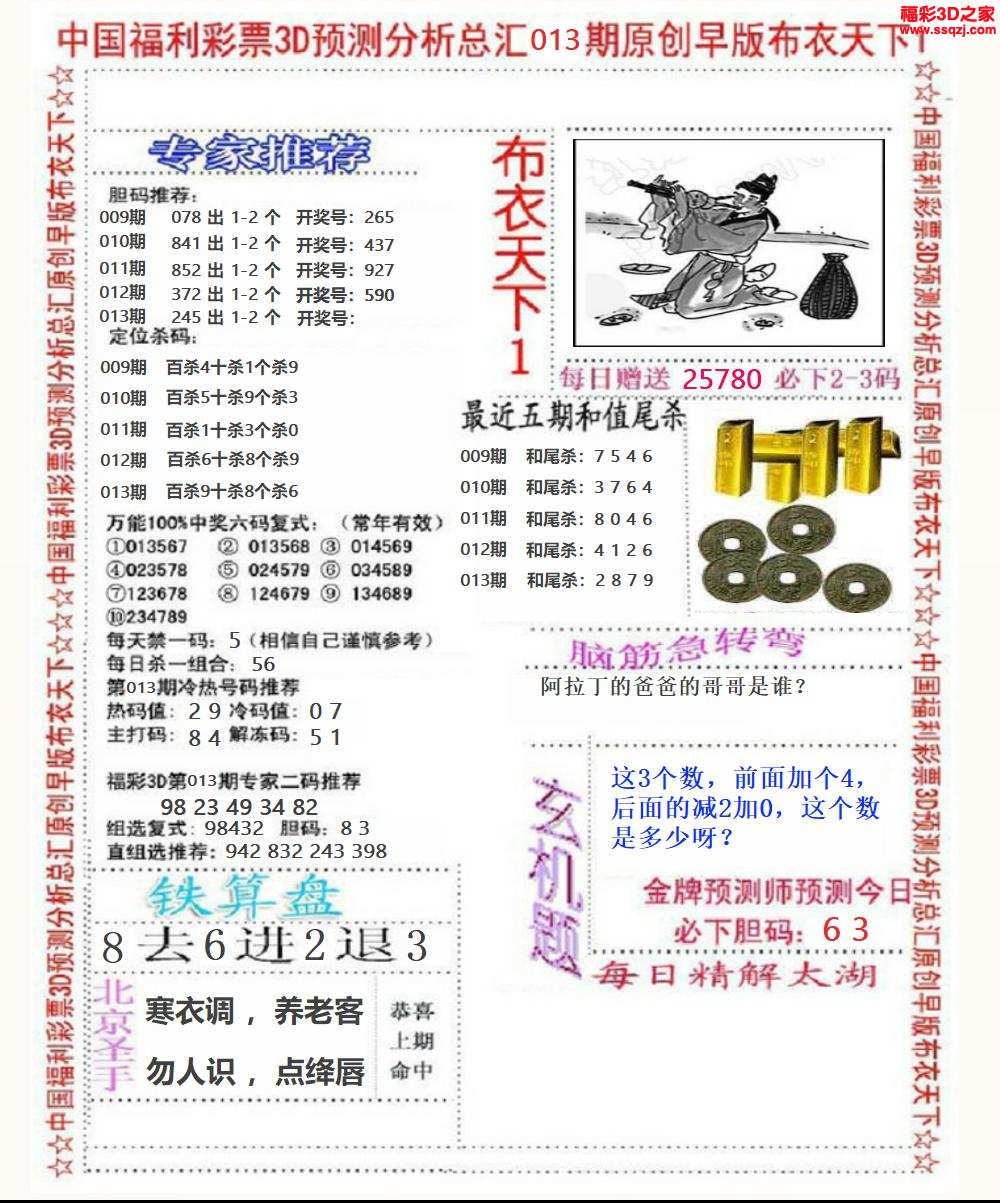 福彩3D之家
www.ssqzj.com
中国福利彩票3D预测分析总汇013期原创早版布衣天下1
☆☆中国福利彩票3D预测分析总汇原创早版布衣天下☆☆中国福利彩票3D预测分析总汇原创早版布衣天下☆☆
专家推荐
胆码推荐:
009期 078 出 1-2 个 开奖号: 265
010期 841 出 1-2 个 开奖号: 437
011期 852 出 1-2 个 开奖号: 927
012期 372 出 1-2 个 开奖号: 590
013期 245 出 1-2 个 开奖号:
定位杀码:
009期 百杀4十杀1个杀9
010期 百杀5十杀9个杀3
011期 百杀1十杀3个杀0
012期 百杀6十杀8个杀9
013期 百杀9十杀8个杀6
万能100%中奖六码复式: (常年有效)
①013567 ② 013568 ③ 014569
④023578 ⑤ 024579 ⑥ 034589
⑦123678 ⑧ 124679 ⑨ 134689
⑩234789
每天禁一码: 5 (相信自己谨慎参考)
每日杀一组合: 56
第013期冷热号码推荐
热码值: 2 9 冷码值: 0 7
主打码: 8 4 解冻码: 5 1
福彩3D第013期专家二码推荐
98 23 49 34 82
组选复式: 98432 胆码: 8 3
直组选推荐: 942 832 243 398
铁算盘
8去6进2退3
北京圣手
寒衣调，养老客
勿人识，点绛唇
恭喜
上期
命中
布衣天下1
每日赠送 25780 必下2-3码
最近五期和值尾杀
009期 和尾杀: 7 5 4 6
010期 和尾杀: 3 7 6 4
011期 和尾杀: 8 0 4 6
012期 和尾杀: 4 1 2 6
013期 和尾杀: 2 8 7 9
脑筋急转弯
阿拉丁的爸爸的哥哥是谁?
玄机题
这3个数，前面加个4，
后面的减2加0，这个数
是多少呀？
金牌预测师预测今日
必下胆码: 6 3
每日精解太湖
☆☆中国福利彩票3D预测分析总汇原创早版布衣天下☆☆中国福利彩票3D预测分析总汇原创早版布衣天下☆☆